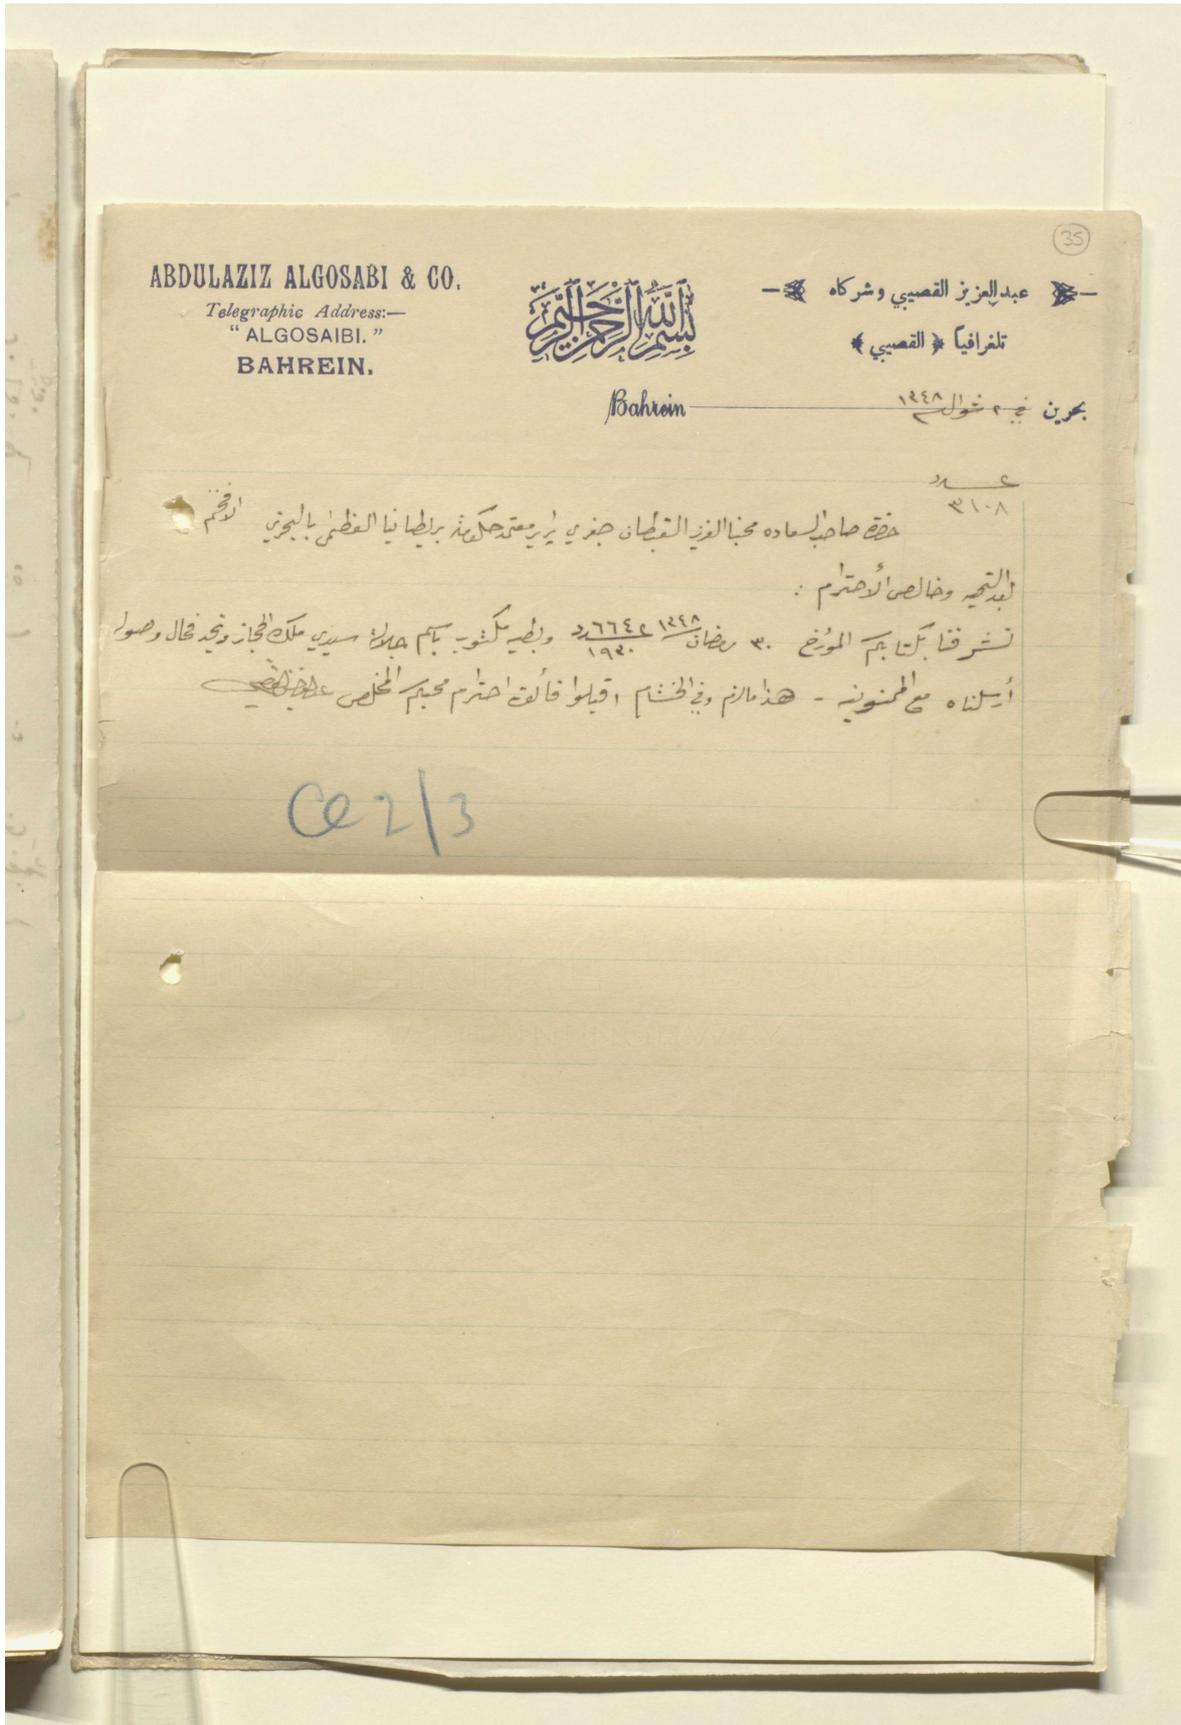 35
ABDULAZIZ ALGOSABI & CO.
Telegraphic Address:—
"ALGOSAIBI."
BAHREIN.
بسم الله الرحمن الرحيم
عبد العزيز القصيبي وشركاه
تلغرافياً ﴿ القصيبي ﴾
Bahrein
بحرين في ٢ شوال ١٣٤٨
عدد
٣١٠٨
حضرة صاحب السعاده محبنا العزيز القبطان جفري معتمد حكومة بريطانيا العظمى بالبحرين الافخم
بعد التحيه وخالص الأحترام :
تشرفنا بكتابكم المؤرخ ٣٠ رمضان ١٣٤٨ عدد ٦٦٤ ١٩٣٠ وبطيه مكتوب باسم جلالة سيدي ملك الحجاز ونجد فحال وصوله
أرسلناه مع الممنونيه - هذا مالزم وفي الختام اقبلوا فائق احترام محبكم المخلص
2/3